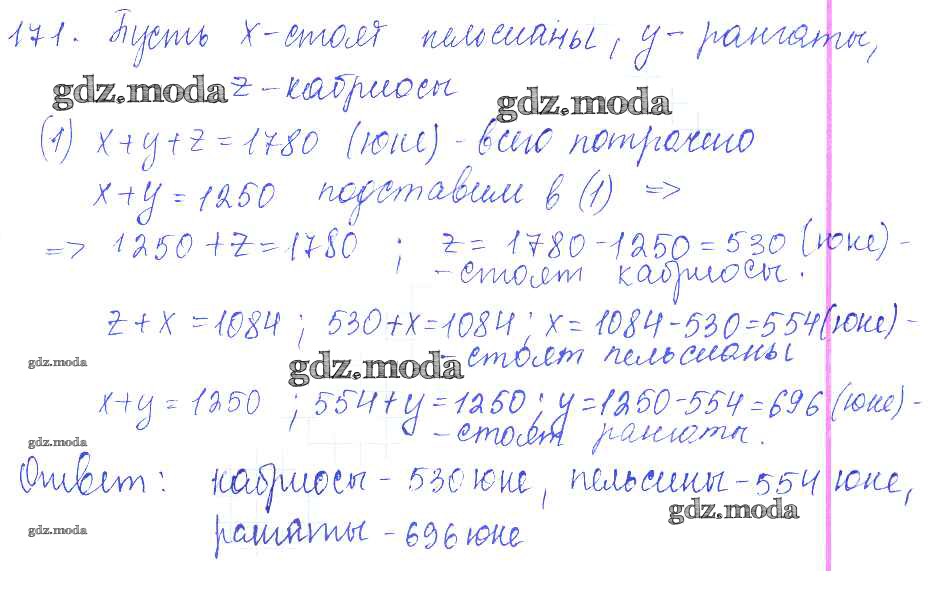 171. Пусть x - стоят пельсианы, y - рангаты,
gdz.moda z - кабриосы gdz.moda
(1) x + y + z = 1780 (юне) - всего потрачено
x + y = 1250 подставим в (1) =>
=> 1250 + z = 1780 ; z = 1780 - 1250 = 530 (юне) -
- стоят кабриосы.
z + x = 1084 ; 530 + x = 1084 ; x = 1084 - 530 = 554 (юне) -
gdz.moda gdz.moda - стоят пельсианы
x + y = 1250 ; 554 + y = 1250 ; y = 1250 - 554 = 696 (юне) -
gdz.moda - стоят рангаты.
Ответ: кабриосы - 530 юне, пельсины - 554 юне,
gdz.moda
gdz.moda рангаты - 696 юне